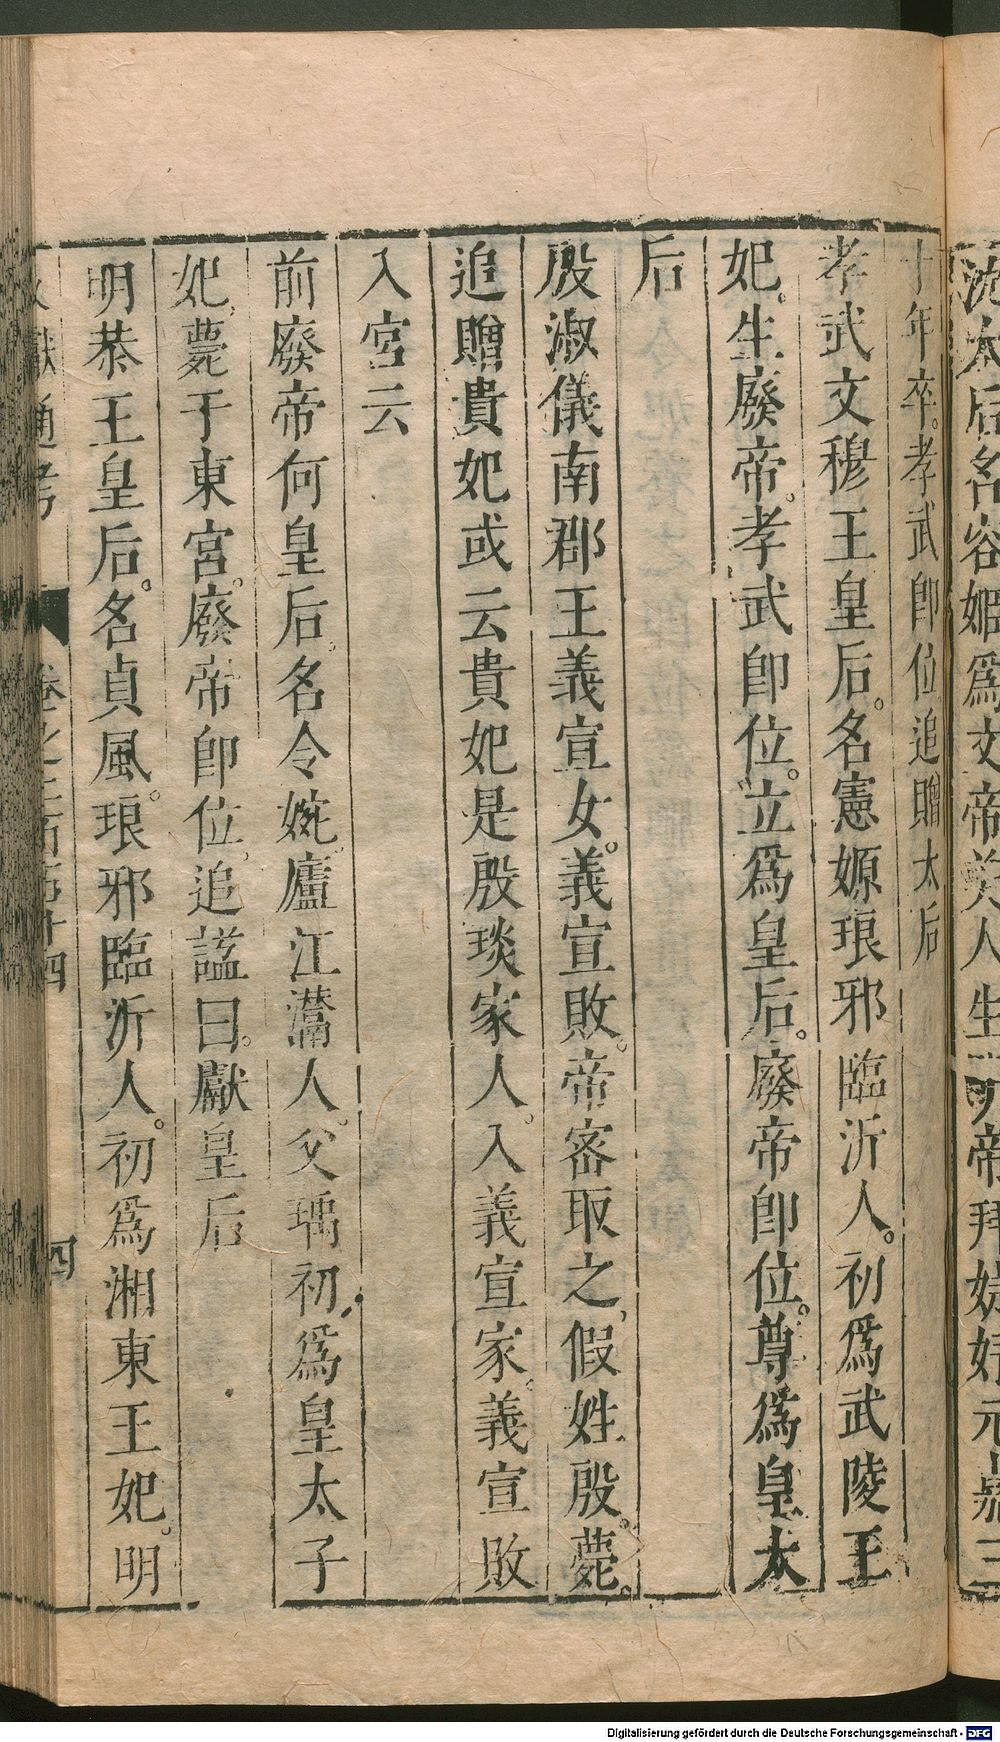 沈太后名容姬爲文帝美人生明帝拜婕妤元嘉三
十年卒。孝武即位追贈太后
孝武文穆王皇后。名憲嫄琅邪臨沂人。初爲武陵王
妃。生廢帝。孝武即位。立爲皇后。廢帝即位。尊爲皇太
后
殷淑儀南郡王義宣女。義宣敗。帝密取之,假姓殷。薨。
追贈貴妃或云貴妃是殷琰家人。入義宣家。義宣敗
入宮云
前廢帝何皇后。名令婉。廬江灊人。父瑀初爲皇太子
妃。薨于東宮。廢帝即位。追謚曰。獻皇后
明恭王皇后。名貞風。琅邪臨沂人。初爲湘東王妃。明
文獻通考
四
Digitalisierung gefördert durch die Deutsche Forschungsgemeinschaft - DFG